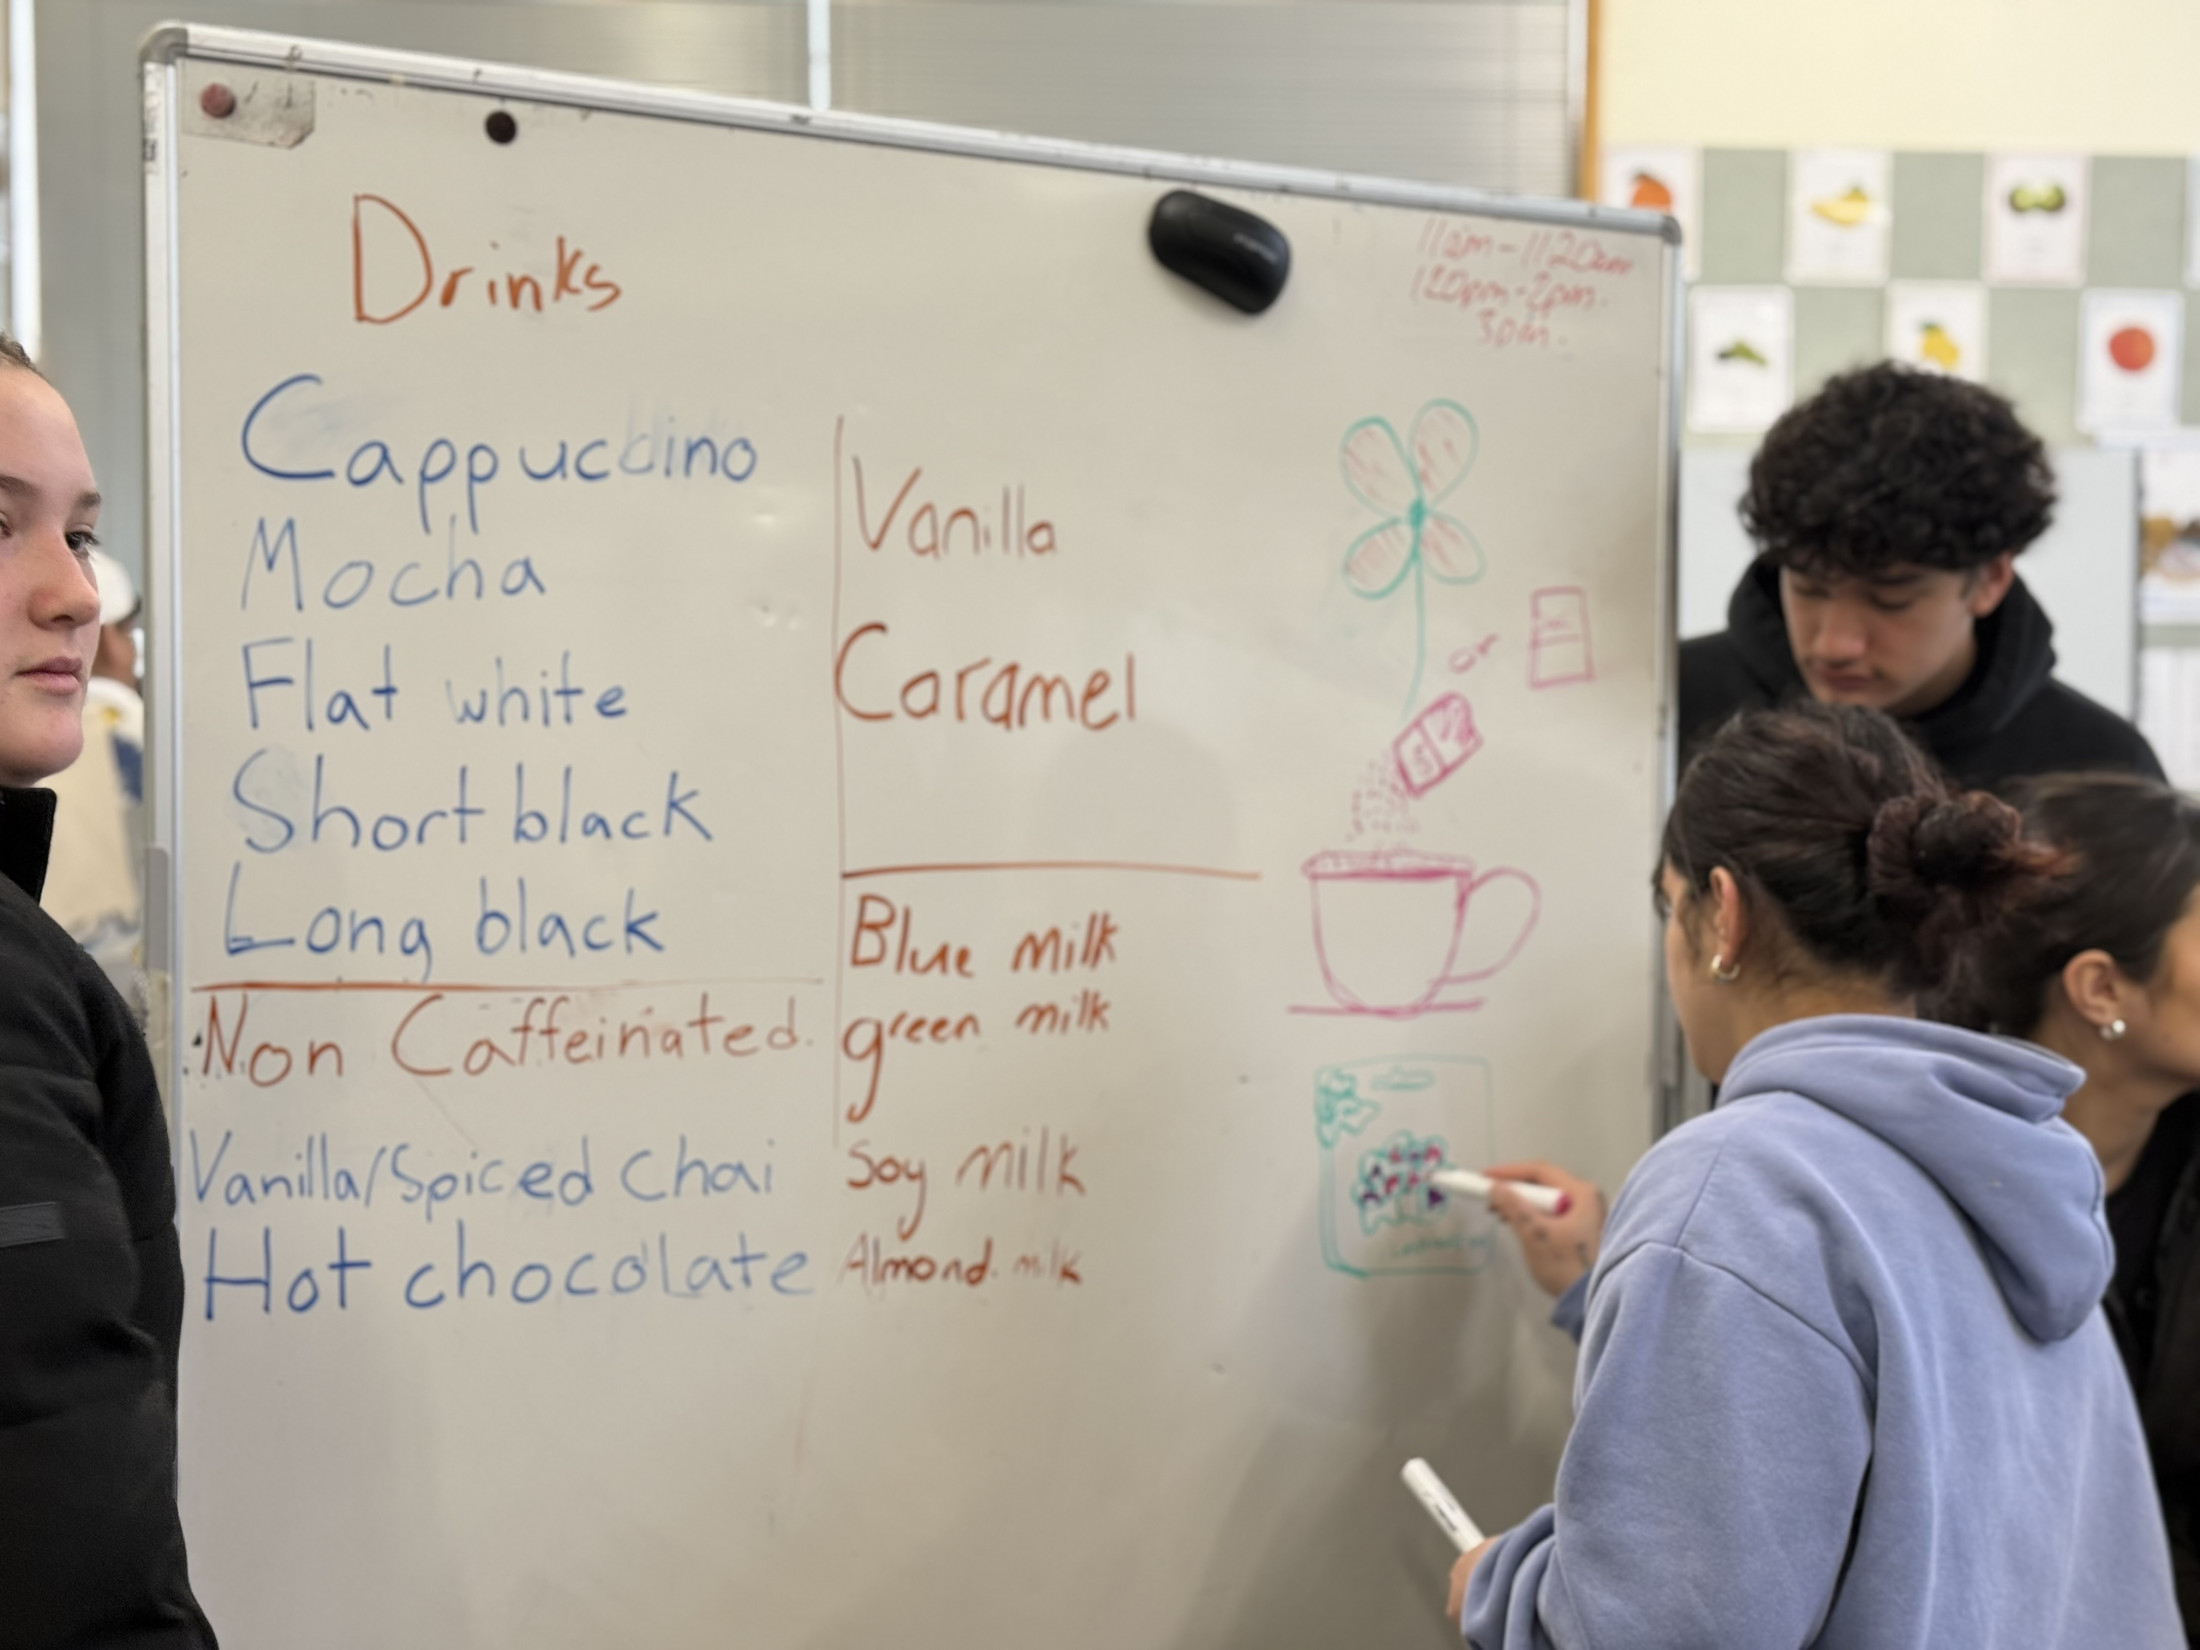 Drinks
11am-1120am
120pm-2pm.
3pm.
Cappuccino
Mocha
Flat white
Short black
Long black
Vanilla
Caramel
or
Blue milk
green milk
Soy milk
Almond milk
Non Caffeinated.
Vanilla/Spiced Chai
Hot chocolate